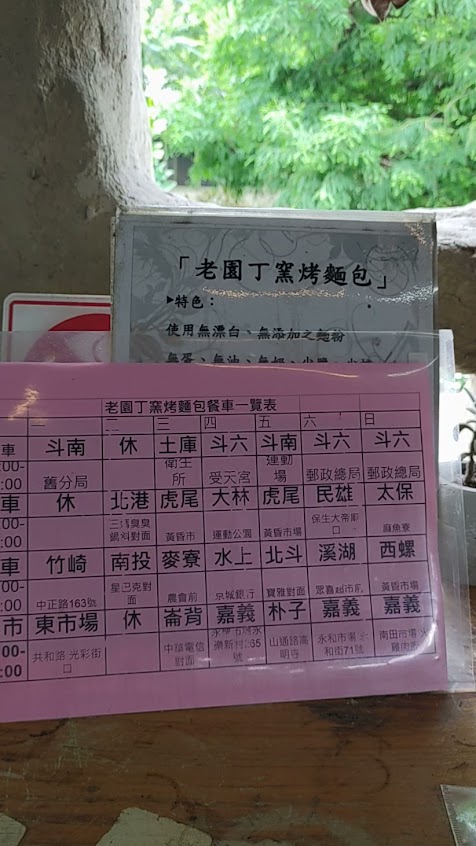 「老園丁窯烤麵包」
▶特色：
使用無漂白、無添加之麵粉
無蛋、無油、無奶、少鹽、少糖
老園丁窯烤麵包餐車一覽表
一 二 三 四 五 六 日
車 斗南 休 土庫 斗六 斗南 斗六 斗六
:00- 舊分局 衛生所 受天宮 運動場 郵政總局 郵政總局
:00
車 休 北港 虎尾 大林 虎尾 民雄 太保
:00- 對面 黃昏市 運動公園 黃昏市場 保生大帝廟口 麻魚寮
:00
車 竹崎 南投 麥寮 水上 北斗 溪湖 西螺
:00- 中正路163號 星巴克對面 農會前 京城銀行 寶雅對面 黃昏市場
:00
市 東市場 休 崙背 嘉義 朴子 嘉義 嘉義
00- 共和路 光彩街口 中華電信對面 樂新村265號 山通路高明寺 永和市場 和街71號 南田市場
:00